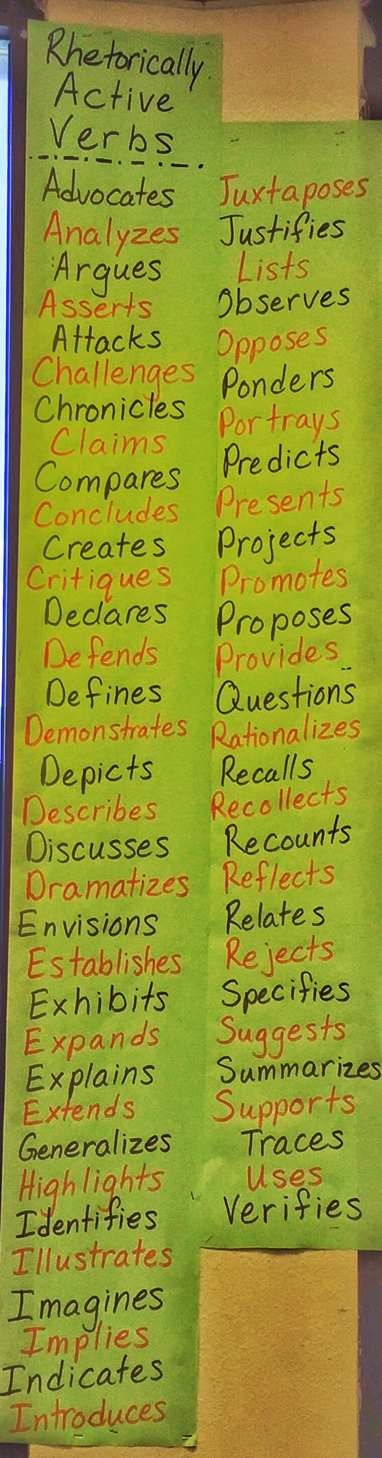 Rhetorically
Active
Verbs
Advocates
Analyzes
Argues
Asserts
Attacks
Challenges
Chronicles
Claims
Compares
Concludes
Creates
Critiques
Declares
Defends
Defines
Demonstrates
Depicts
Describes
Discusses
Dramatizes
Envisions
Establishes
Exhibits
Expands
Explains
Extends
Generalizes
Highlights
Identifies
Illustrates
Imagines
Implies
Indicates
Introduces
Juxtaposes
Justifies
Lists
Observes
Opposes
Ponders
Portrays
Predicts
Presents
Projects
Promotes
Proposes
Provides
Questions
Rationalizes
Recalls
Recollects
Recounts
Reflects
Relates
Rejects
Specifies
Suggests
Summarizes
Supports
Traces
Uses
Verifies